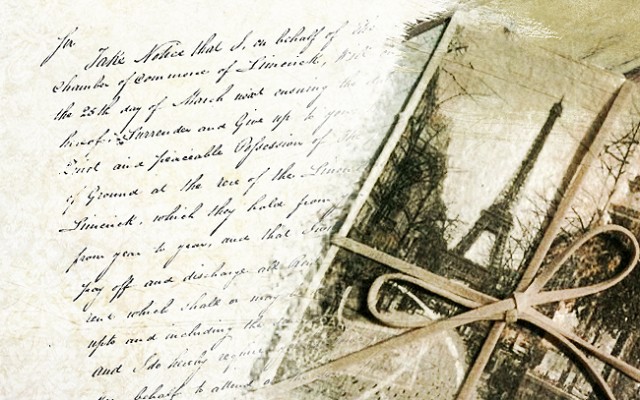 Sir
Take Notice that I, on behalf of the
Chamber of Commerce of Limerick, Will
the 25th day of March next ensuing the
hereof, Surrender and Give up to you
Quiet and Peaceable Possession of
of Ground at the rere of the Limerick
Limerick, which they hold from
from year to year, and that I
pay off and discharge all
rent which shall or may
upto and including the
and I do hereby require
behalf to attend